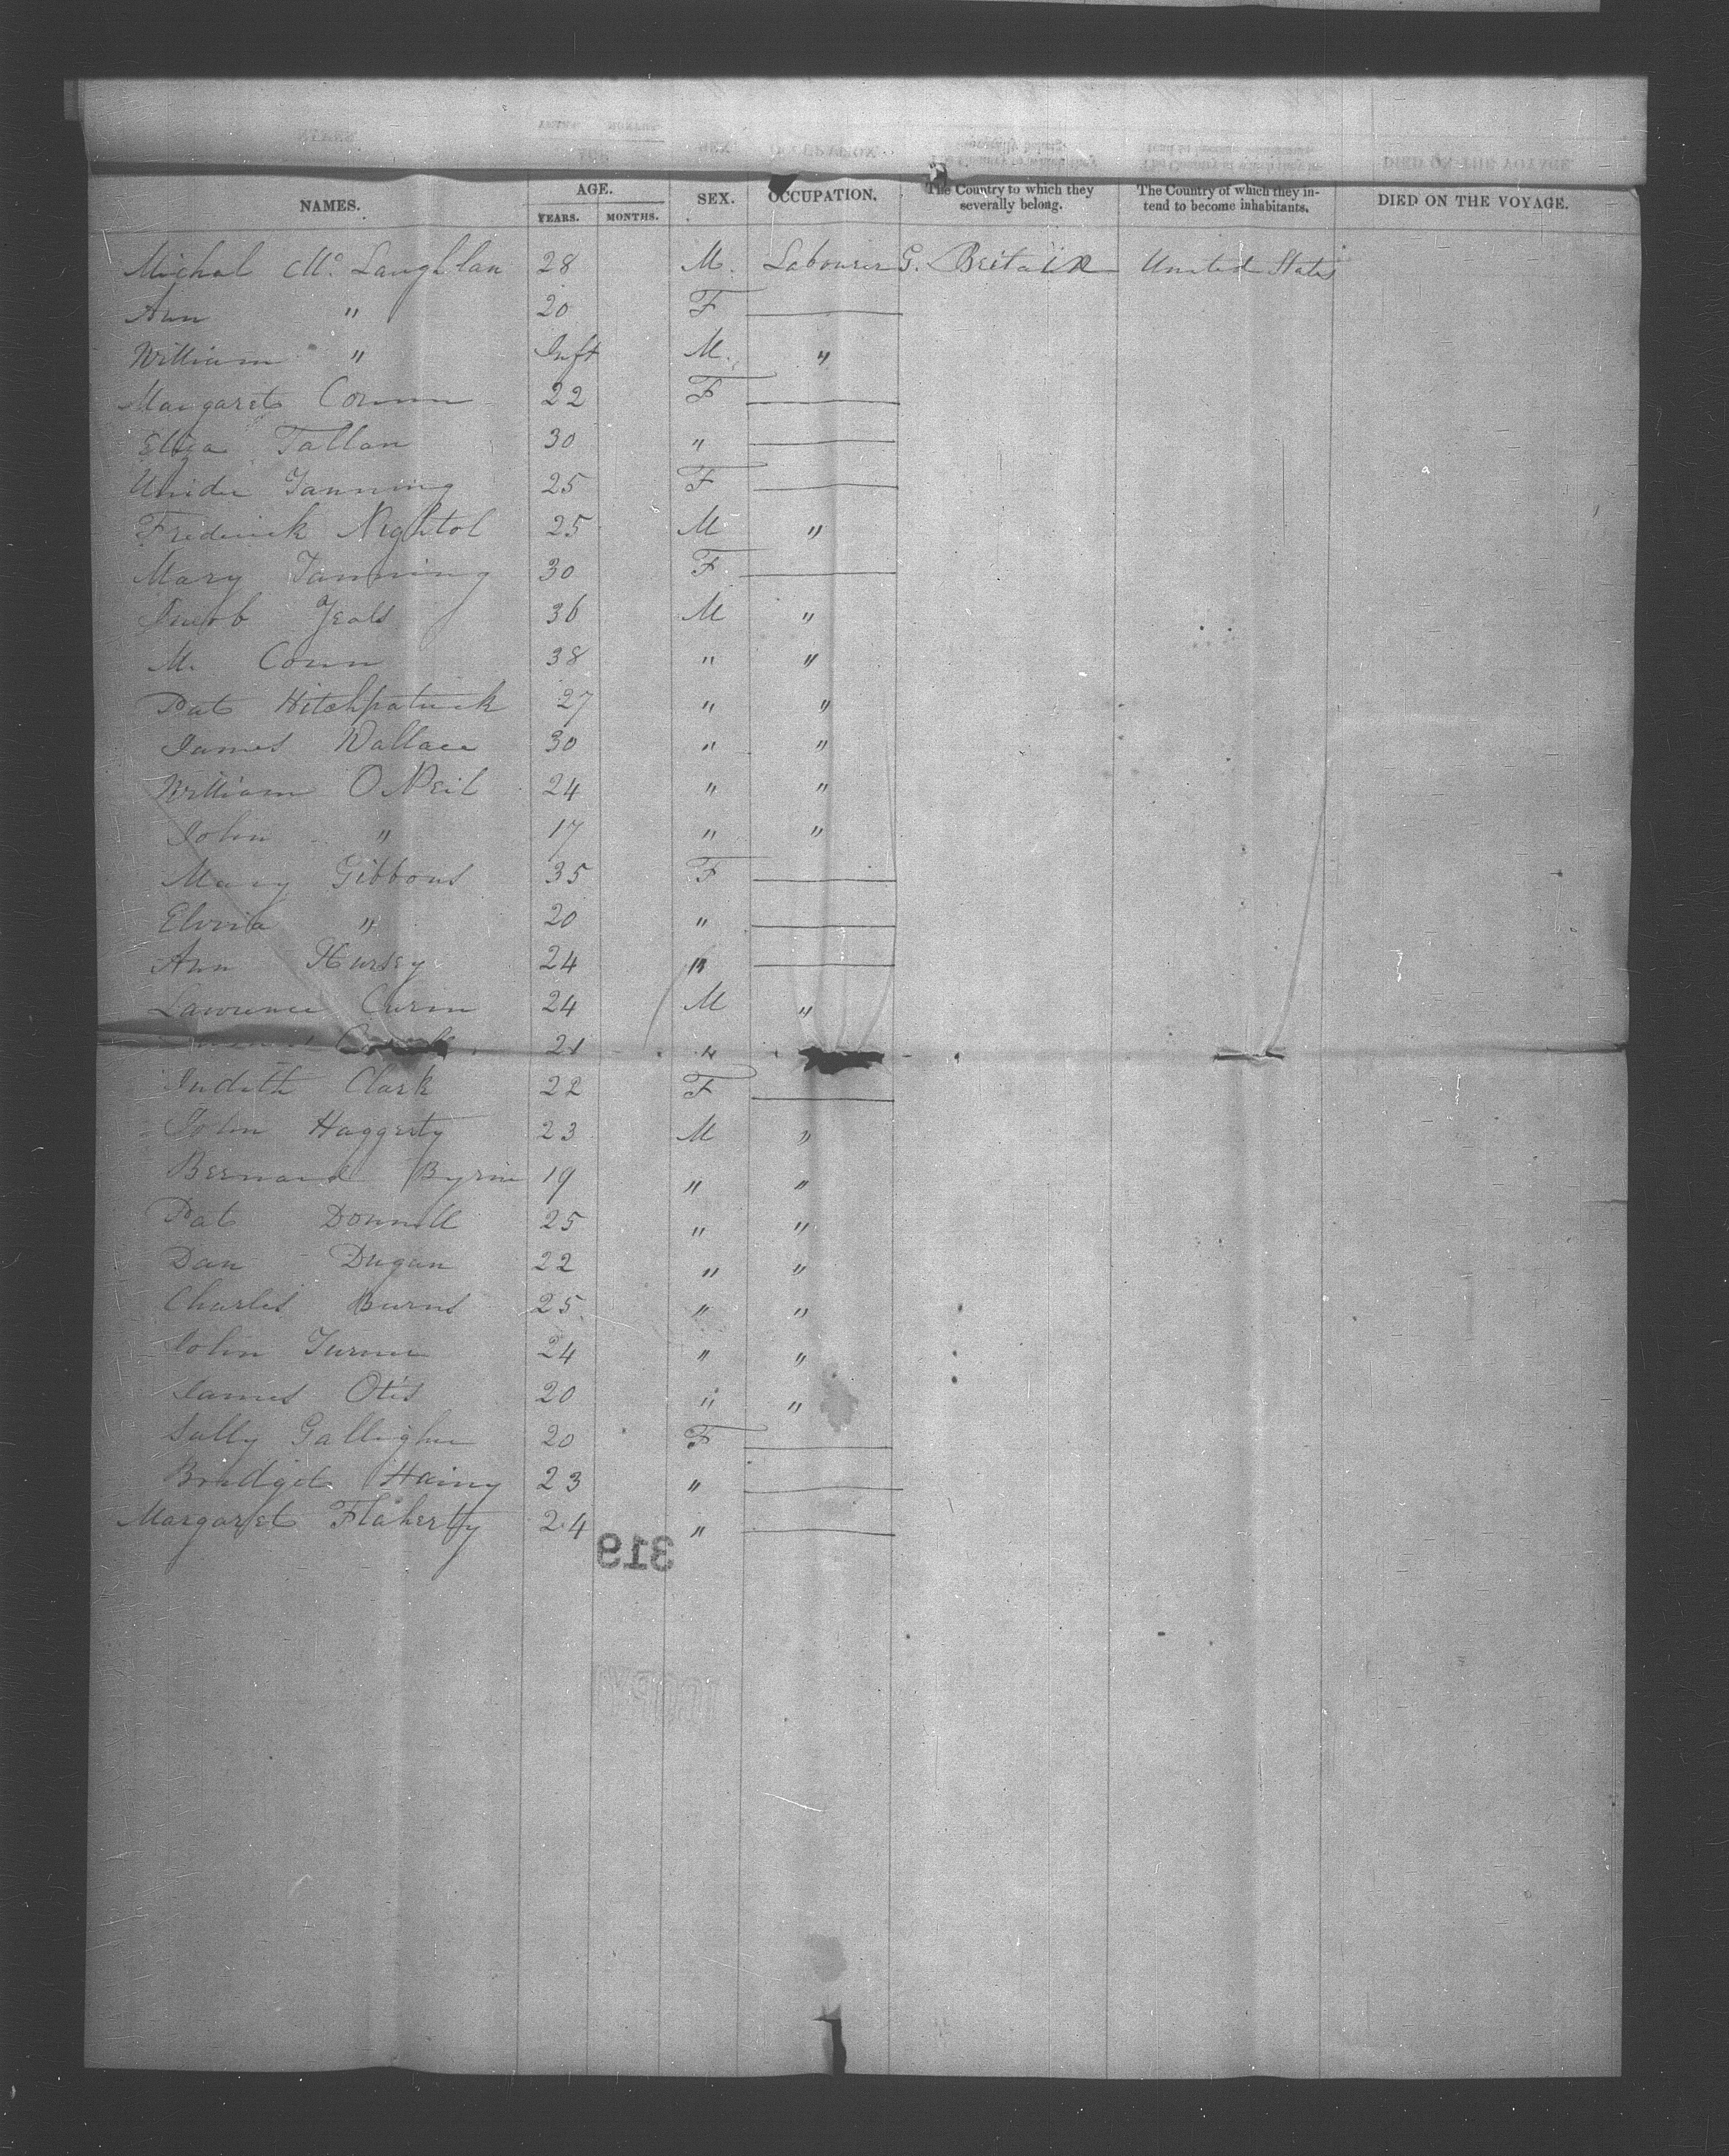 NAMES. AGE. YEARS. MONTHS. SEX. OCCUPATION. The Country to which they severally belong. The Country of which they intend to become inhabitants. DIED ON THE VOYAGE.
Michal Mc. Laughlan 28 M. Labourer G. Britain United States
Ann " 20 F
William " Inft M. "
Margaret 22 F
Eliza Tallan 30 "
25 F
Frederick Nightol 25 M "
Mary 30 F
Jacob 36 M "
M. 38 " "
Pat Hitchpatrick 27 " "
James Wallace 30 " "
William O Neil 24 " "
John " 17 " "
Mary Gibbons 35 F
" 20 "
Ann Hursey 24 "
Lawrence 24 M "
21 "
Judith Clark 22 F
John Haggerty 23 M "
Bernard Byrne 19 " "
Pat Donnell 25 " "
Dan Dugan 22 " "
Charles Burns 25 " "
John Turner 24 " "
James Otis 20 " "
Sally Galligher 20 F
Bridget 23 "
Margaret Flaherty 24 "
319